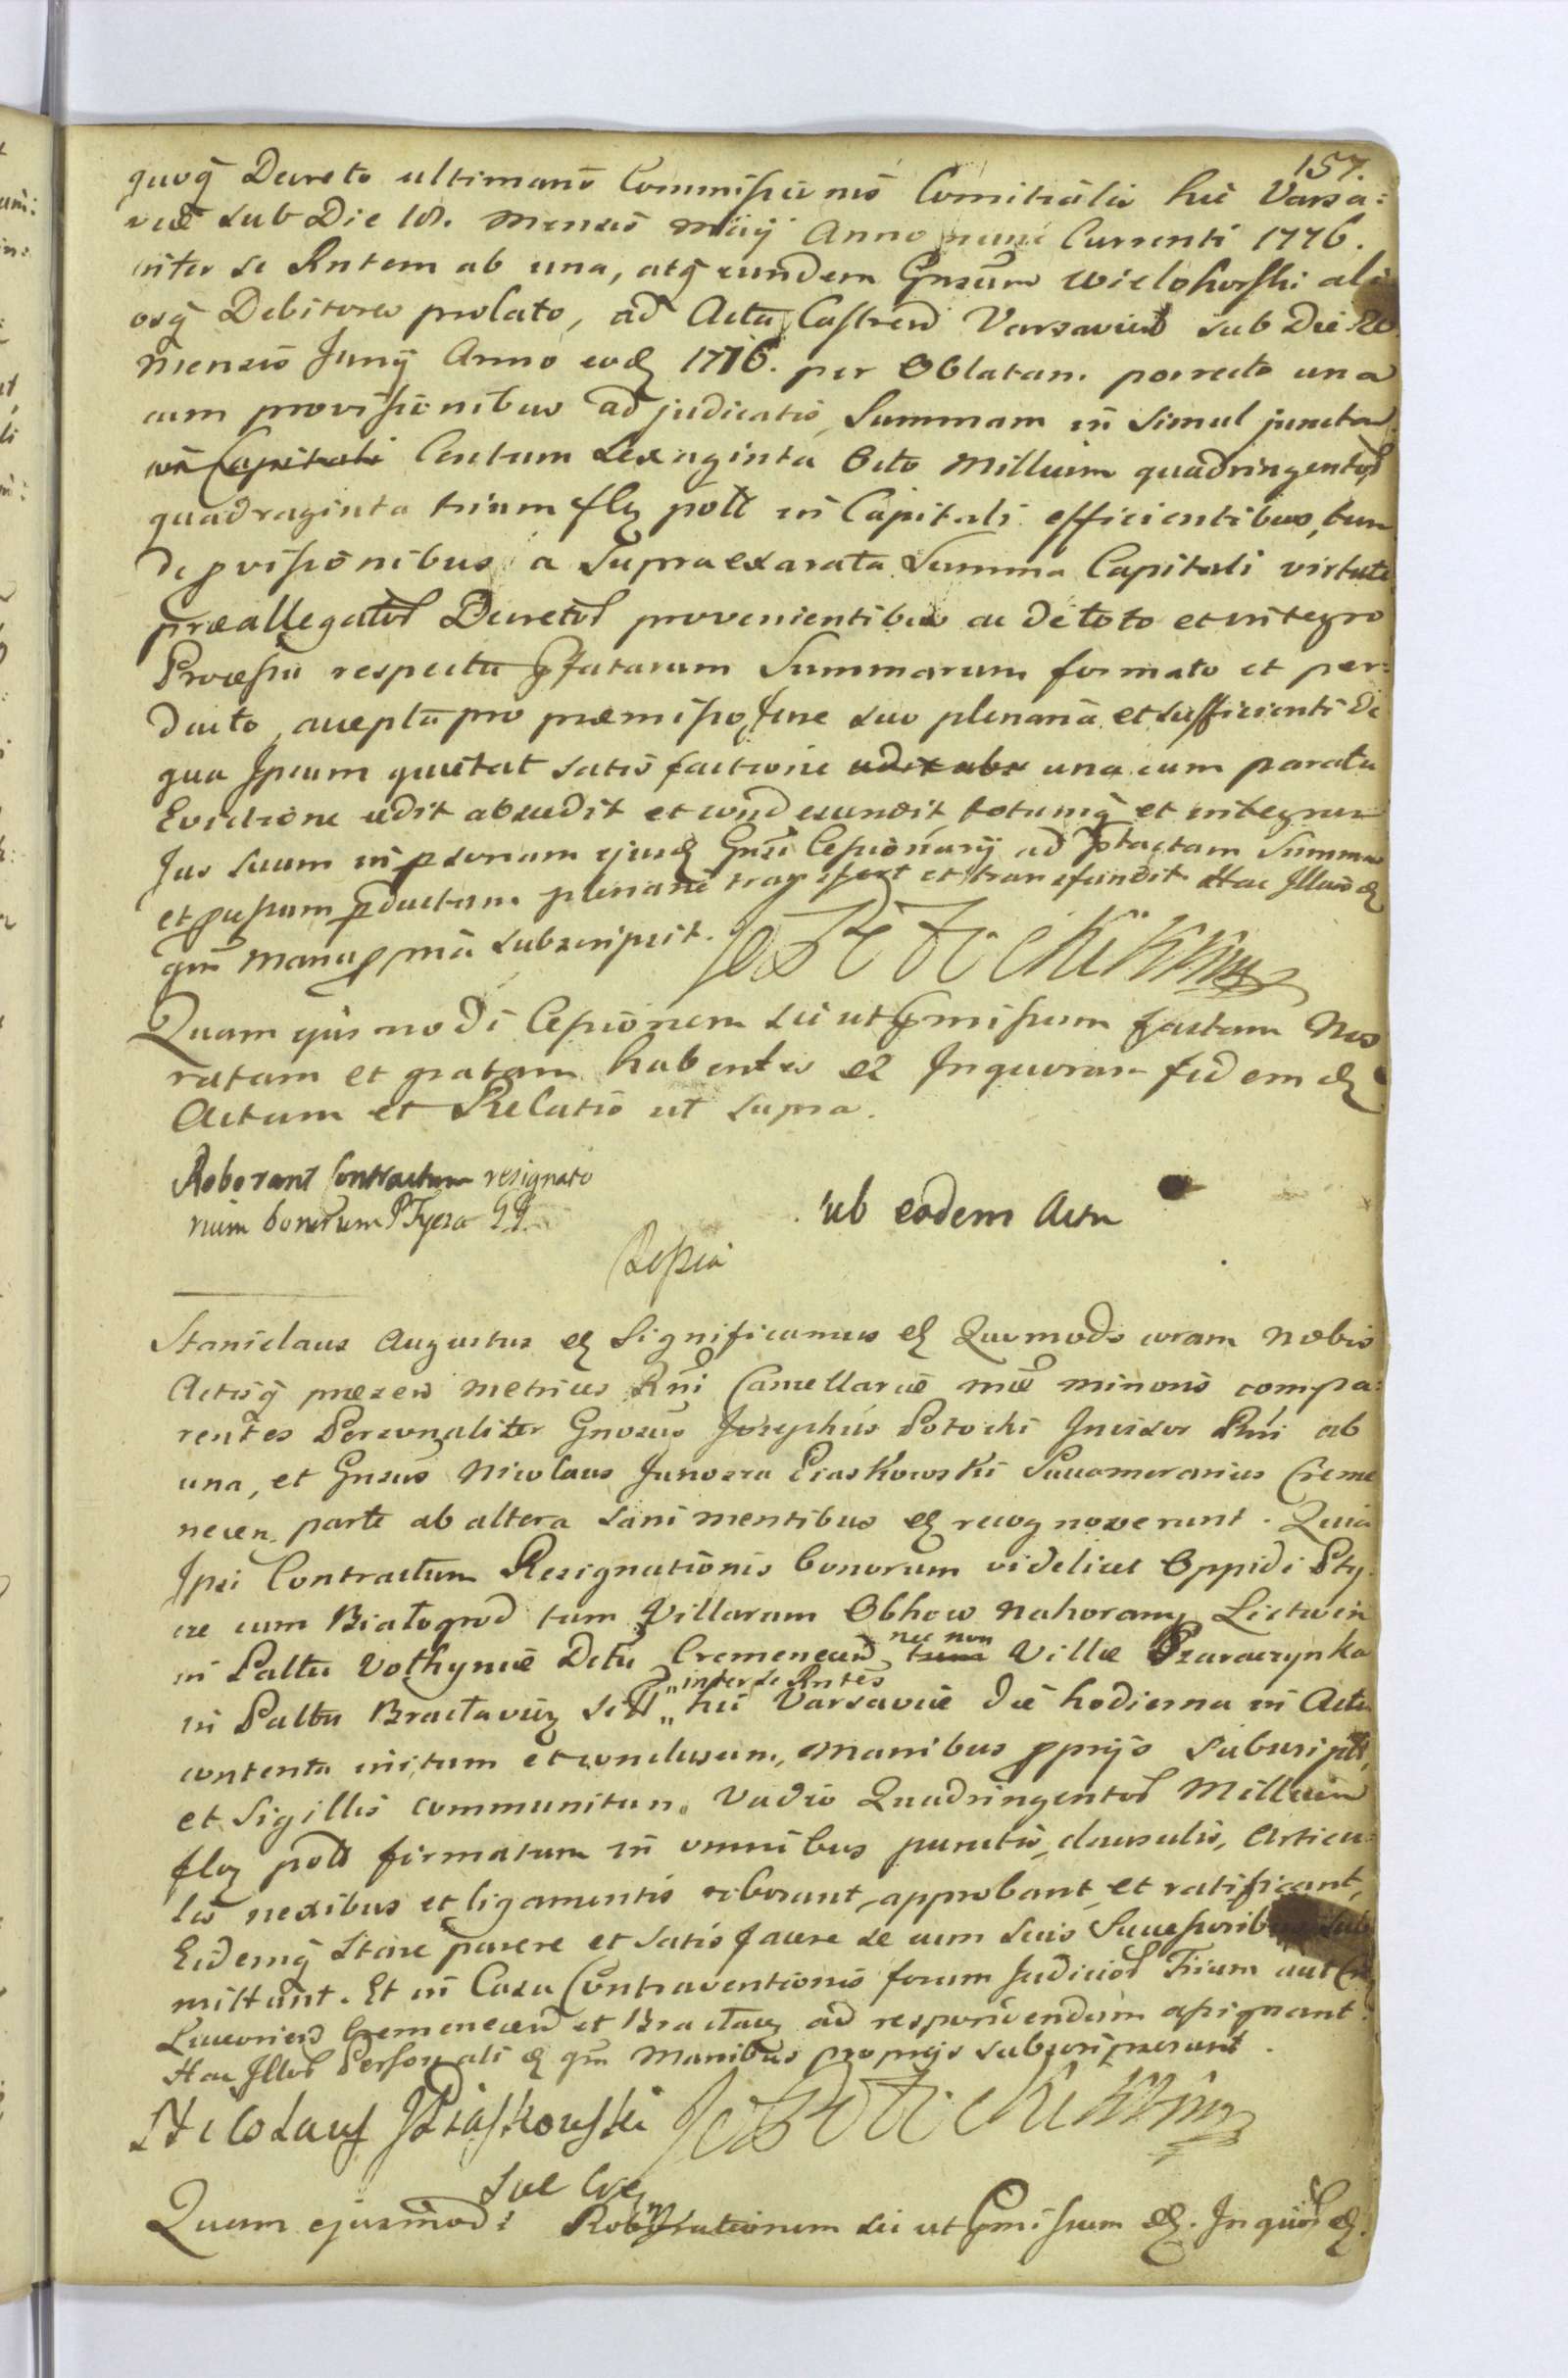 157.
quoq Decreto ultimario Commissionis Comitialis hic Varsa:
viae sub Die 18. mensis Maij Anno nunc Currenti 1776.
inter se Rntem ab una, atq eundem Gnsum Wielohorski ali
osq Debitores prolato, ad Acta Castren Varsavien sub Die
mensis Junij Anno eod 1776. per Oblatam porrecto una
cum provisionibus adjudicatis, Summam in simul junctam
in Capitali Centum Sexaginta Octo Millium quadringentor
quadraginta trium flq poll in Capitali efficientibus, tum
de pvisionibus a Supraexarata Summa Capitali virtute
praeallegator Decretor provenientibus ac de toto et integro
Processu respectu pfatarum Summarum formato et per:
ducto, accepta pro praemisso Jure suo plenaria et sufficienti de
qua Ipsum quietat satisfactione una cum parata
Evictione cedit abscedit et condescendit, totumq et integrum
Jus suum in psonam ejusd Gnsi Cessionarij ad ptactam Summam
et pcessum pductum plenarie transfert et transfundit Hac Illius
qm manu pria subscripsit. Jos Potocki KKmp
Quam ejusmodi Cessionem sic ut pmissum factam Nos
ratam et gratam habentes Inquorum fidem
Actum et Relatio ut supra.
Roborant Contractum resignatio
num bonorum PTycza GG
ub eodem Actu
Stanislaus Augustus Significamus Quomodo coram Nobis
Actisq praesen metrices Rni Cancellariae mae minoris compa:
rentes Personaliter Gnosus Josephus Potocki Incisor Rni ab
una, et Gnsus Nicolaus Junosza Piaskowski Succamerarius Creme
necen. parte ab altera sani mentibus recognoverunt. Quia
Ipsi Contractum Resignationis bonorum videlicet Oppidi Pty
cze cum Białogrod tum Villarum Obhow Nahorany Lictwin
in Palttu Vołhyniae Dctu Cremenecen nec non Villae
in Palttu Bractavien inter se Rntes hic Varsaviae die hodierna in Actu
contenta initum et conclusum, manibus pprijs subscript,
et Sigillis communitum Vadio Quadringentor Millium
flq poll firmatum in omnibus punctis, clausulis, Articu
lis nexibus et ligamentis roborant, approbant et ratificant,
Eidemq stare parere et satisfacere se cum suis Successoribus sub
mittunt. Et in Casu Contraventionis forum Judicior Trium aut
Luceorien Cremenecen et Bractavien ad respondendum assignant.
Hac Illor Personali qm Manibus proprijs subscripserunt.
Nicolaus JPiaskowski Jos Potocki KKmp
Quam ejusmodi Roborationem sic ut pmissum Inquor